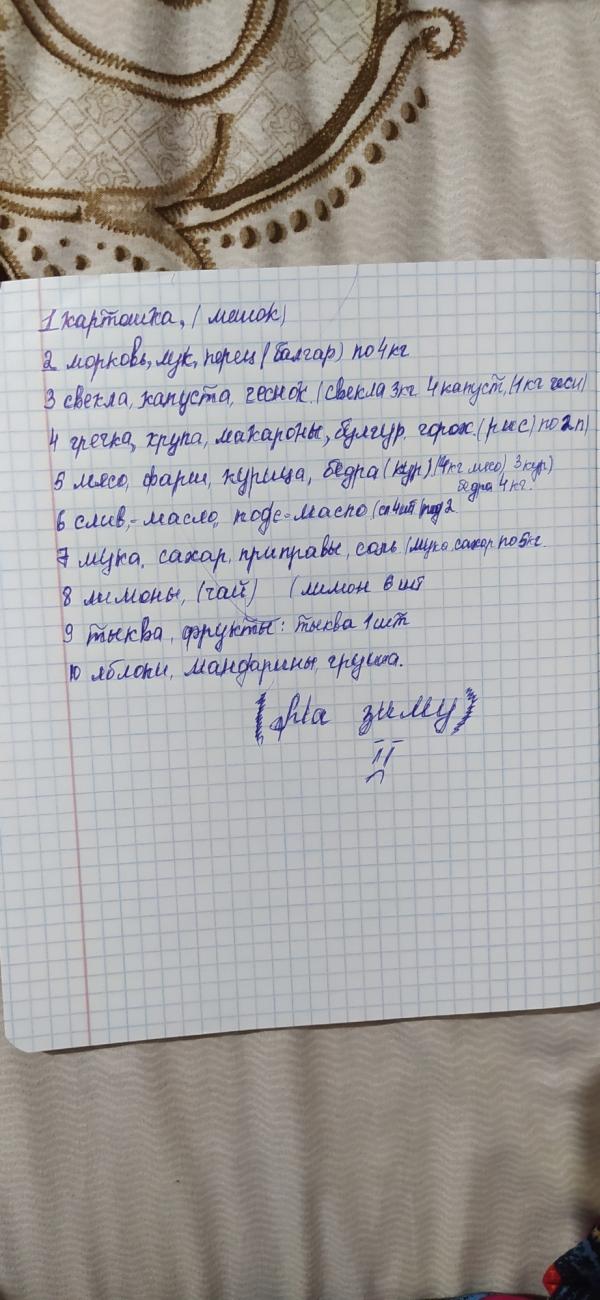 1 картошка, (мешок)
2 морковь, лук, перец (балгар) по 4 кг
3 свекла, капуста, чеснок. (свекла 3кг 4 капуст, (1 кг чесн)
4 гречка, крупа, макароны, булгур, горох. (рис) по 2 п)
5 мясо, фарш, курица, бедра (кур) (4кг мясо) 3 кур)
бедра 4 кг.
6 слив,-масло, подс-масло (сл 4шт) под 2
7 мука, сахар, приправы, соль. (мука, сахар по 5кг.
8 лимоны, (чай) (лимон 6 шт
9 тыква, фрукты: тыква 1 шт
10 яблоки, мандарины, груша.
(На зиму)